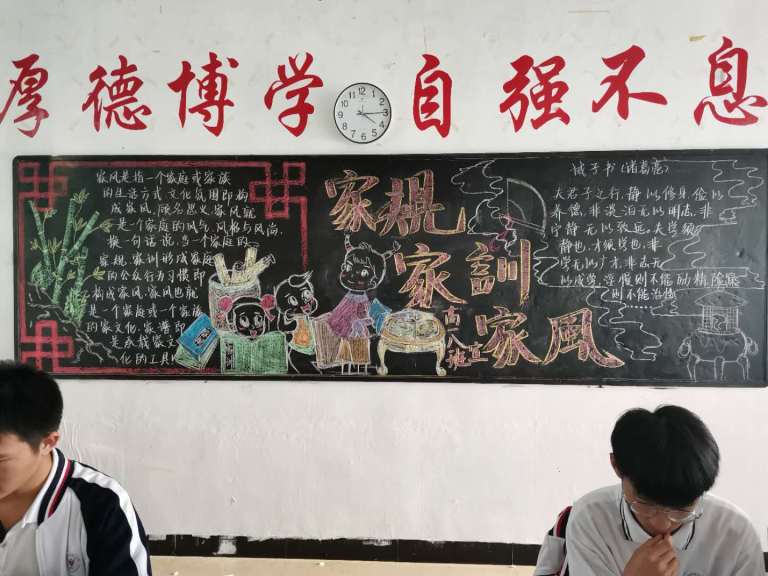 厚德博学 自强不息
家风是指一个家庭或家族
的生活方式文化氛围即构
成家风,顾名思义,家风就
是一个家庭的风气,风格与风尚,
换一句话说,当一个家庭的
家规家训形成家庭
的公众行为习惯即
构成家风,家风也就
是一个家庭或一个家族
的家文化,家
是承载家文
化的工具
家规
家训
家风
高八班宣
诫子书(诸葛亮)
夫君子之行,静以修身,俭以
养德,非淡泊无以明志,非
宁静无以致远,夫学须
静也,才须学也,非
学无以广才,非志无
以成学,淫慢则不能励精,险躁
则不能治性
12
1
2
3
4
5
6
7
8
9
10
11